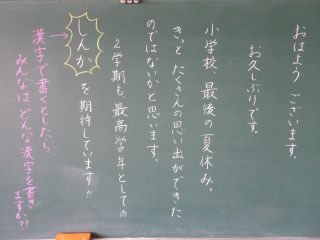 おはよう ございます。
お久しぶりです。
小学校、最後の夏休み。
きっと たくさんの思い出ができた
のではないかと思います。
2学期も最高学年としての
しんか を期待しています!!
漢字で書くとしたら、
みんなは、どんな漢字を書き
ますか??